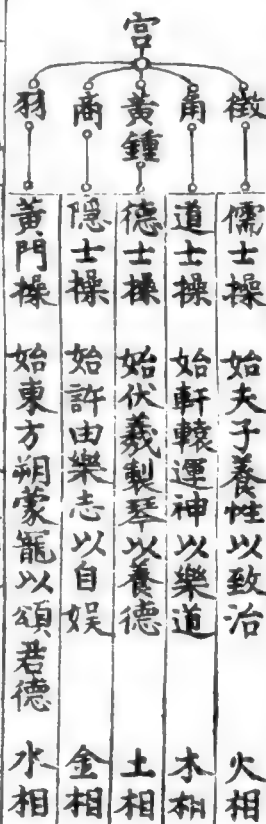 宮
徵
儒士操 始夫子養性以致治 火相
角
道士操 始軒轅運神以樂道 木相
黃鍾
德士操 始伏羲製琴以養德 土相
商
隱士操 始許由樂志以自娱 金相
羽
黃門操 始東方朔蒙寵以頌君德 水相